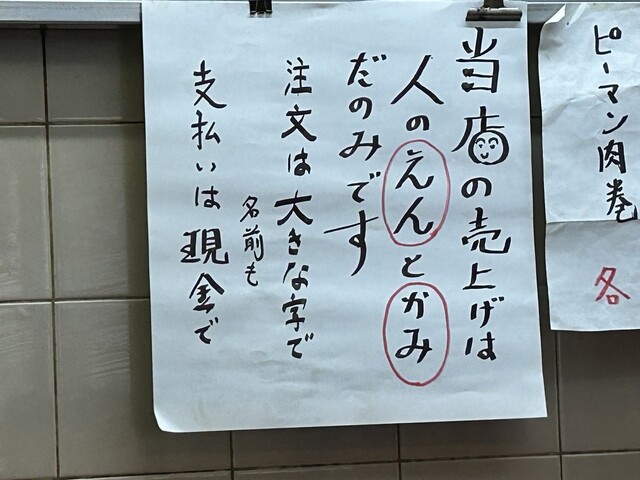 当店の売上げは
人のえんとかみ
だのみです
注文は大きな字で
名前も
支払いは現金で
ピーマン肉巻
各